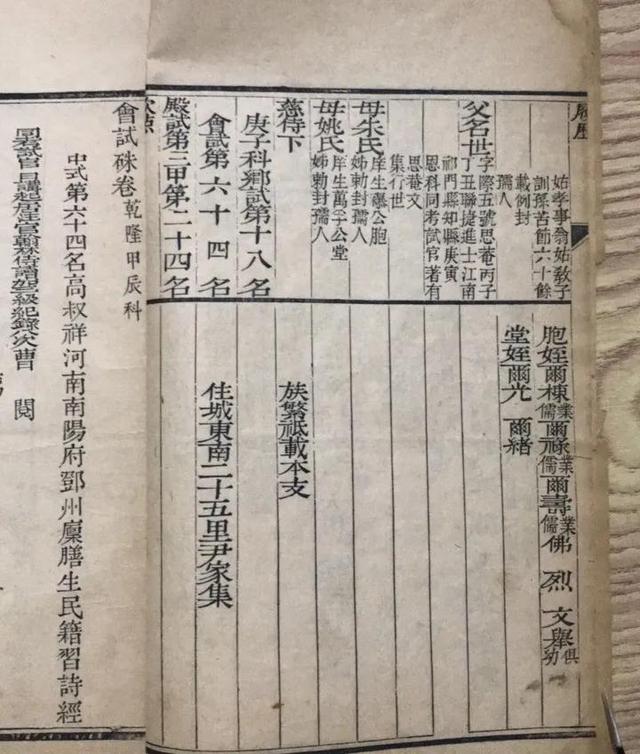 履歷
姑孝事翁姑教子
訓孫苦節六十餘
載例封
孺人
父名世字際五號思菴丙子
丁丑聯捷進士江南
祁門縣知縣庚寅
恩科同考試官著有
思菴文
集行世
母朱氏庠生 公胞
姊勅封孺人
母姚氏庠生萬子公堂
姊勅封孺人
慈侍下
庚子科鄉試第十八名
會試第六十四名
殿試第三甲第二十四名
欽點
胞姪爾棟業儒爾祿業儒爾壽業儒佛烈文舉俱幼
堂姪爾光 爾緒
族繁祗載本支
住城東南二十五里尹家集
會試硃卷乾隆甲辰科
中式第六十四名高叔祥河南南陽府鄧州廩膳生民籍習詩經
同考試官日講起居注官翰林院侍讀加 級紀錄 次曹 閱